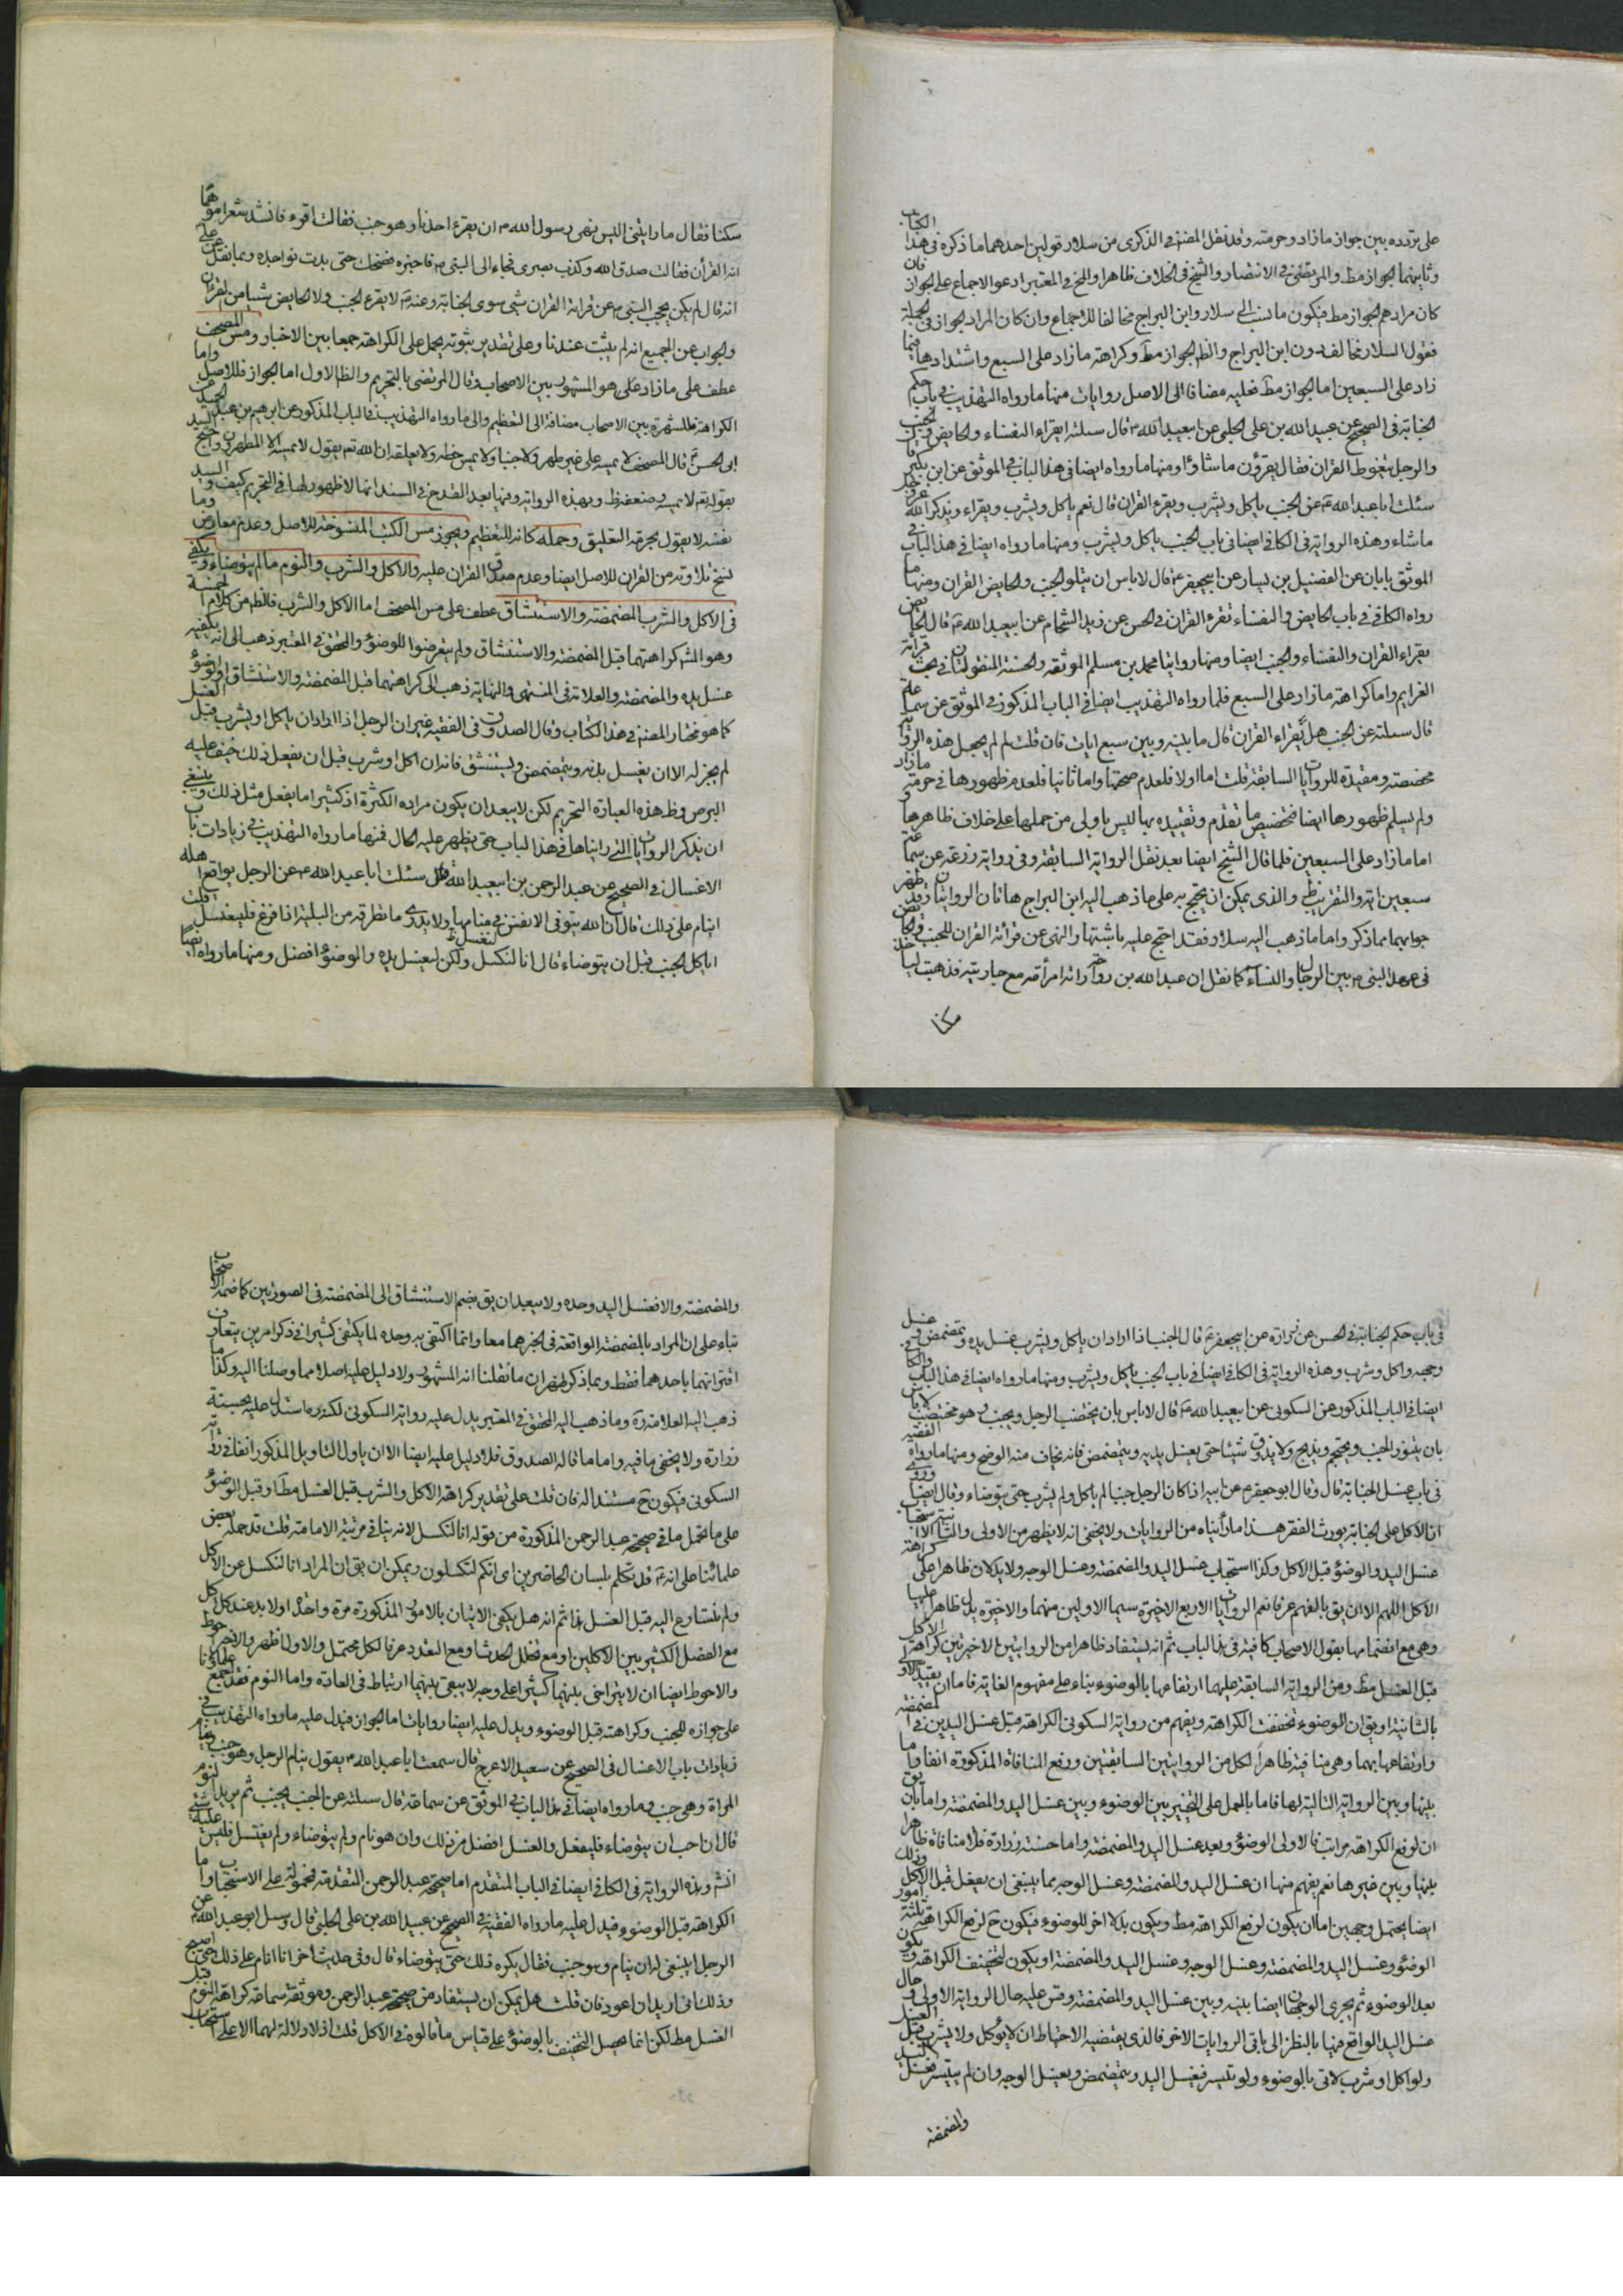 على تردده بين جواز ما زاد وحرمته وقد نقل المصنف في الذكرى من سلار قولين احدهما ما ذكره في هذا الكتاب
وثانيهما الجواز مط والمرتضى في الانتصار والشيخ في الخلاف ظاهرا والمحقق في المعتبر ادعوا الاجماع على الجواز فان
كان مرادهم الجواز مط فيكون ما نسب الى سلار وابن البراج مخالفا للاجماع وان كان المراد الجواز في الجملة
فقول السلار مخالف دون ابن البراج والظ الجواز مط وكراهة ما زاد على السبع واشتدادها فيما
زاد على السبعين اما الجواز مط فعليه مضافا الى الاصل روايات منها ما رواه التهذيب في باب حكم
الجنابة في الصحيح عن عبيد الله بن علي الحلبي عن ابيعبد الله ع قال سئلته ايقراء النفساء والحايض والجنب
والرجل يتغوط القران فقال يقرؤن ما شاؤا ومنها ما رواه ايضا في هذا الباب في الموثق عن ابن بكير قال
سئلت ابا عبد الله ع عن الجنب ياكل ويشرب ويقرء القران قال نعم ياكل ويشرب ويقراء ويذكر الله عز وجل
ماشاء وهذه الرواية في الكافي ايضا في باب الجنب ياكل ويشرب ومنها ما رواه ايضا في هذا الباب في
الموثق بابان عن الفضيل بن يسار عن ابيجعفر ع قال لا باس ان يتلو الجنب والحايض القران ومنها ما
رواه الكافي في باب الحايض والنفساء تقرء القران في الحسن عن زيد الشحام عن ابيعبد الله ع قال الحايض
يقراء القران والنفساء والجنب ايضا ومنها روايتا محمد بن مسلم الموثقة والحسنة المنقولتان في بحث قرائة
العزايم واما كراهة ما زاد على السبع فلما رواه التهذيب ايضا في الباب المذكور في الموثق عن سماعة
قال سئلته عن الجنب هل يقراء القران قال ما بينه وبين سبع ايات فان قلت لم لم يجعل هذه الرواية
مخصصة ومقيدة للروايات السابقة قلت اما اولا فلعدم صحتها واما ثانيا فلعدم ظهورها في حرمة ما زاد
ولو سلم ظهورها ايضا فتخصيص ما تقدم وتقييده بها ليس باولى من حملها على خلاف ظاهرها و
اما ما زاد على السبعين فلما قال الشيخ ايضا بعد نقل الرواية السابقة وفي رواية زرعة عن سماعة
سبعين اية والتقريب ظ والذي يمكن ان يحتج به على ما ذهب اليه ابن البراج هاتان الروايتان وقد ظهر
جوابهما مما ذكر واما ما ذهب اليه سلار فقد احتج عليه باشتهار النهي عن قرائة القران للجنب والحايض
في عهد النبي ص بين الرجال والنساء كما نقل ان عبد الله بن رواحة راته امرأته مع جاريته فذهبت لتاخذ
سكنا
سكنا فقال ما رايتني اليس نهى رسول الله ص ان يقرء احدنا وهو جنب فقالت اقرء فانشد شعرا موهما
انه القرآن فقالت صدق الله وكذب بصري فجاء الى النبي ص فاخبره فضحك حتى بدت نواجذه وبما نقل عن علي ع
انه قال لم يكن يحجب النبي ص عن قرائة القران شي سوى الجنابة وعنه ع لا يقرء الجنب ولا الحايض شيئا من القران
والجواب عن الجميع انه لم يثبت عندنا وعلى تقدير ثبوته يحمل على الكراهة جمعا بين الاخبار ومس المصحف
عطف على ما زاد على هو المشهور بين الاصحاب وقال المرتضى بالتحريم والظ الاول اما الجواز فللاصل واما
الكراهة فللشهرة بين الاصحاب مضافة الى التعظيم والى ما رواه التهذيب في الباب المذكور عن ابرهيم بن عبد الحميد عن
ابي الحسن ع قال المصحف لا تمسه على غير طهر ولا جنبا ولا تمس خطه ولا تعلقه ان الله تعم يقول لا يمسه الا المطهرون واحتج السيد
بقوله تعم لا يمسه وضعفه ظ وبهذه الرواية وفيها بعد القدح في السند انها لا ظهور لها في التحريم كيف والسيد
نفسه لا يقول بحرمة التعليق وحمله كانه للتعظيم ويجوز مس الكتب المنسوخة للاصل وعدم معارض وما
نسخ تلاوته من القران للاصل ايضا وعدم صدق القران عليه والاكل والشرب والنوم ما لم يتوضاء ويكفي
في الاكل والشرب المضمضة والاستنشاق عطف على مس المصحف اما الاكل والشرب فالظ من كلام
وهو المش كراهتهما قبل المضمضة والاستنشاق ولم يتعرضوا للوضوء والمحقق في المعتبر ذهب الى انه يكفيه
غسل يده والمضمضة والعلامة في المنتهى والنهاية ذهب الى كراهتهما قبل المضمضة والاستنشاق او الوضوء
كما هو مختار المصنف في هذا الكتاب وقال الصدوق في الفقيه ان الرجل اذا اراد ان ياكل او يشرب قبل الغسل
لم يجز له الا ان يغسل يديه ويتمضمض ويستنشق فانه ان اكل او شرب قبل ان يفعل ذلك خيف عليه
البرص وظ هذه العبارة التحريم لكن لا يبعد ان يكون مراده الكثرة اذ كثيرا ما يفعل مثل ذلك وينبغي
ان يذكر الروايات التي رايناها في هذا الباب حتى يظهر عليه الحال فمنها ما رواه التهذيب في زيادات باب
الاغسال في الصحيح عن عبد الرحمن بن ابيعبد الله قال سئلت ابا عبد الله ع عن الرجل يواقع اهله
اينام على ذلك قال ان الله يتوفى الانفس في منامها ولا يدري ما تطرقه من البلية اذا فرغ فليغتسل قلت
اياكل الجنب قبل ان يتوضاء قال انا لنكسل ولكن ليغسل يده والوضوء افضل ومنها ما رواه ايضا
في باب حكم الجنابة في الحسن عن زرارة عن ابيجعفر ع قال الجنب اذا اراد ان ياكل ويشرب غسل يده وتمضمض وغسل
وجهه واكل وشرب وهذه الرواية في الكافي ايضا في باب الجنب ياكل ويشرب ومنها ما رواه ايضا في هذا الباب والكافي
ايضا في الباب المذكور عن السكوني عن ابيعبد الله ع قال لا باس بان يختضب الرجل ويجنب وهو مختضب ولا باس
بان يتنور الجنب ويحتجم ويذبح ولا يذوق شيئا حتى يغسل يديه ويتمضمض فانه يخاف منه الوضح ومنها ما رواه الفقيه
في باب غسل الجنابة قال وقال ابو جعفر ع عن ابيه اذا كان الرجل جنبا لم ياكل ولم يشرب حتى يتوضاء وقال ايضا وروي
ان الاكل على الجنابة يورث الفقر هذا ما رأيناه من الروايات ولا يخفى انه لا يظهر من الاولى والثانية الا استحباب
غسل اليد والوضوء قبل الاكل وكذا استحباب غسل اليد والمضمضة وغسل الوجه ولا يدلان ظاهرا على كراهة
الاكل اللهم الا ان يق بالفهم عرفا نعم الروايات الاربع الاخيرة سيما الاوليين منهما والاخيرة يدل ظاهرا عليها
وهي مع انضمامها بقول الاصحاب كافية في هذا الباب ثم انه يستفاد ظاهرا من الروايتين الاخيرتين كراهة الاكل
قبل الغسل مط ومن الرواية السابقة عليهما ارتفاعها بالوضوء بناء على مفهوم الغاية فاما ان يقيد الاولى
بالثانية او يق ان الوضوء تخفف الكراهة ويفهم من رواية السكوني الكراهة قبل غسل اليدين والمضمضة
وارتفاعها بهما وهي منافية ظاهرا لكل من الروايتين السابقتين ورفع المنافاة المذكورة انفا واما
بينها وبين الرواية التالية لها فاما بالحمل على التخيير بين الوضوء وبين غسل اليد والمضمضة واما بان يق
ان لرفع الكراهة مراتب فالاولى الوضوء وبعده غسل اليد والمضمضة واما حسنة زرارة فلا منافاة ظاهرا
بينها وبين غيرها نعم يفهم منها ان غسل اليد والمضمضة وغسل الوجه مما ينبغي ان يفعل قبل الاكل وذلك
ايضا يحتمل وجهين اما ان يكون لرفع الكراهة مط ويكون بدلا اخر للوضوء فيكون ح لرفع الكراهة ثلثة امور
الوضوء وغسل اليد والمضمضة وغسل الوجه وغسل اليد والمضمضة او يكون لتخفيف الكراهة ويكون
بعد الوضوء ثم يجري الوجهان ايضا بينه وبين غسل اليد والمضمضة وقس عليه حال الرواية الاولى وحال
غسل اليد الواقع فيها بالنظر الى باقي الروايات الاخر فالذي يقتضيه الاحتياط ان لا يؤكل ولا يشرب قبل الغسل
ولو اكل او شرب لاتى بالوضوء ولو لم يتيسر فيغسل اليد ويتمضمض ويغسل الوجه وان لم يتيسر فغسل اليد
والمضمضة
والمضمضة والا فغسل اليد وحده ولا يبعد ان يق بضم الاستنشاق الى المضمضة في الصورتين كما ضمه الاصحاب
بناء على ان المراد بالمضمضة الواقعة في الخبر هما معا وانما اكتفى به وحده لما يكتفى كثيرا في ذكر امرين يتعارف
اقترانهما باحدهما فقط وبما ذكر ظهر ان ما نقلنا انه المشهور ولا دليل عليه اصلا مما وصلنا اليه وكذا ما
ذهب اليه العلامة ره وما ذهب اليه المحقق في المعتبر يدل عليه رواية السكوني لكنه ره استدل عليه بحسنة
زرارة ولا يخفى ما فيه واما ما قاله الصدوق فلا دليل عليه ايضا الا ان ياول التاويل المذكور انفا في رواية
السكوني فيكون ح مستندا له فان قلت على تقدير كراهة الاكل والشرب قبل الغسل مط او قبل الوضوء
على ما تحمل ما في صحيحة عبد الرحمن المذكورة من قوله انا لنكسل لانه ينافي مرتبة الامامة قلت قد حمله بعض
علمائنا على انه ع قد تكلم بلسان الحاضرين اي انكم لتكسلون ويمكن ان يق ان المراد انا لنكسل عن الاكل
ولم نتسارع اليه قبل الغسل هذا ثم انه هل يكفي الاتيان بالامور المذكورة مرة واحدة او لا بد عند كل اكل
مع الفصل الكثير بين الاكلين او مع تخلل الحدث او مع التعدد عرفا لكل محتمل والاول اظهر والاخير احوط
والاحوط ايضا ان لا يتراخى بينهما كثيرا على وجه لا يبقى بينهما ارتباط في العادة واما النوم فقد اجمع علماؤنا
على جوازه للجنب وكراهته قبل الوضوء ويدل عليه ايضا روايات اما الجواز فيدل عليه ما رواه التهذيب في
زيادات باب الاغسال في الصحيح عن سعيد الاعرج قال سمعت ابا عبد الله ع يقول ينام الرجل وهو جنب وتنام
المراة وهي جنب وما رواه ايضا في هذا الباب في الموثق عن سماعة قال سئلته عن الجنب يجنب ثم يريد النوم
قال ان احب ان يتوضاء فليفعل والغسل افضل من ذلك وان هو نام ولم يتوضاء ولم يغتسل فليس عليه شئ
انش وهذه الرواية في الكافي ايضا في الباب المتقدم اما صحيحة عبد الرحمن المتقدمة فمحمولة على الاستحباب واما
الكراهة قبل الوضوء فيدل عليه ما رواه الفقيه في الصحيح عن عبيد الله بن علي الحلبي قال وسئل ابو عبد الله ع عن
الرجل اينبغي له ان ينام وهو جنب فقال يكره ذلك حتى يتوضاء قال وفي حديث اخر انا انام على ذلك حتى اصبح
وذلك اني اريد ان اعود فان قلت هل يمكن ان يستفاد من صحيحة عبد الرحمن وموثقة سماعة كراهة النوم قبل
الغسل مط لكن انما يحصل التخفيف بالوضوء على قياس ما قالوه في الاكل قلت اذ لا دلالة لهما الا على استحباب